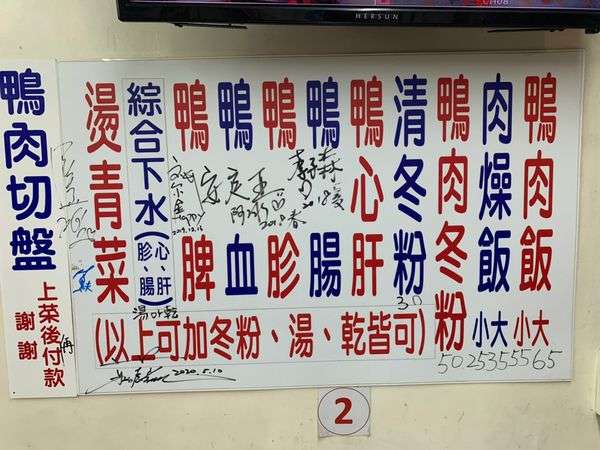 HERSUN
鴨肉飯
小大
55 65
肉燥飯
小大
25 35
鴨肉冬粉
50
清冬粉
30
鴨心肝
鴨腸
鴨胗
鴨血
鴨脾
綜合下水(心、肝、胗、腸)
燙青菜
(以上可加冬粉、湯、乾皆可)
2020.5.10
鴨肉切盤
上菜後付款
謝謝
2